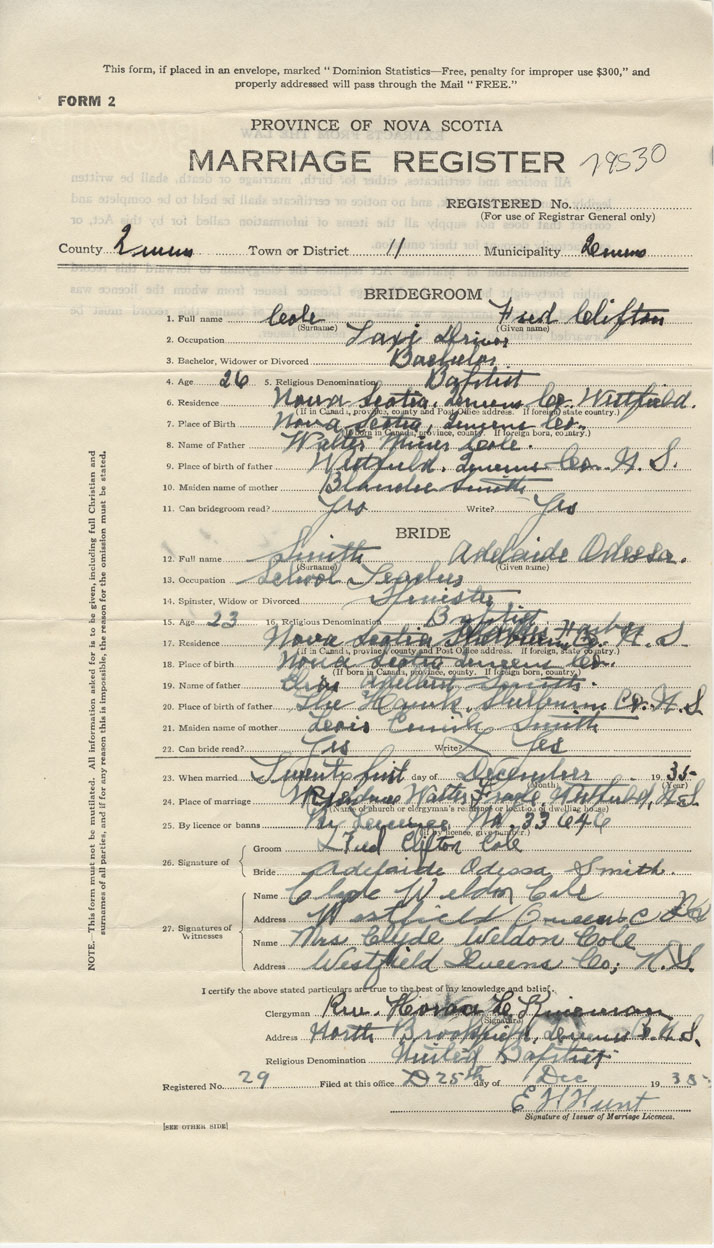 This form, if placed in an envelope, marked "Dominion Statistics—Free, penalty for improper use $300," and
properly addressed will pass through the Mail "FREE."
FORM 2
PROVINCE OF NOVA SCOTIA
MARRIAGE REGISTER 79530
REGISTERED No.
(For use of Registrar General only)
County Queens Town or District 11 Municipality Queens
BRIDEGROOM
1. Full name Cole Fred Clifton
(Surname) (Given name)
2. Occupation Taxi Driver
3. Bachelor, Widower or Divorced Bachelor
4. Age 26 5. Religious Denomination Baptist
6. Residence Nova Scotia, Queens Co. Westfield.
(If in Canada, province, county and Post Office address. If foreign, state country.)
7. Place of Birth Nova Scotia, Queens Co.
(If born in Canada, province, county. If foreign born, country.)
8. Name of Father Walter Cole.
9. Place of birth of father Westfield, Queens Co. N. S.
10. Maiden name of mother Smith
11. Can bridegroom read? Yes Write? Yes
BRIDE
12. Full name Smith Adelaide Odessa.
(Surname) (Given name)
13. Occupation School Teacher
14. Spinster, Widow or Divorced Spinster
15. Age 23 16. Religious Denomination Baptist
17. Residence Nova Scotia N. S.
(If in Canada, province, county and Post Office address. If foreign, state country.)
18. Place of birth Nova Scotia Queens Co.
(If born in Canada, province, county. If foreign born, country.)
19. Name of father Smith.
20. Place of birth of father The Hawk, Shelburne Co. N. S
21. Maiden name of mother Smith
22. Can bride read? Yes Write? Yes
23. When married Twenty first day of December 1935
(Month) (Year)
24. Place of marriage Residence Walter Westfield, N.S.
(Name of church or clergyman's residence or location of dwelling house)
25. By licence or banns By License No. 33646
(If by licence, give number)
26. Signature of
Groom Fred Clifton Cole
Bride Adelaide Odessa Smith.
27. Signatures of Witnesses
Name Clyde Weldon Cole
Address Westfield Queens C
Name Mrs Clyde Weldon Cole
Address Westfield Queens Co; N.S.
I certify the above stated particulars are true to the best of my knowledge and belief.
Clergyman Rev.
(Signature)
Address North Brookfield, Queens Co. N.S.
Religious Denomination United Baptist
Registered No. 29 Filed at this office 25th day of Dec 1935
E H Hunt
Signature of Issuer of Marriage Licences.
[SEE OTHER SIDE]
NOTE.—This form must not be mutilated. All information asked for is to be given, including full Christian and
surnames of all parties, and if for any reason this is impossible, the reason for the omission must be stated.